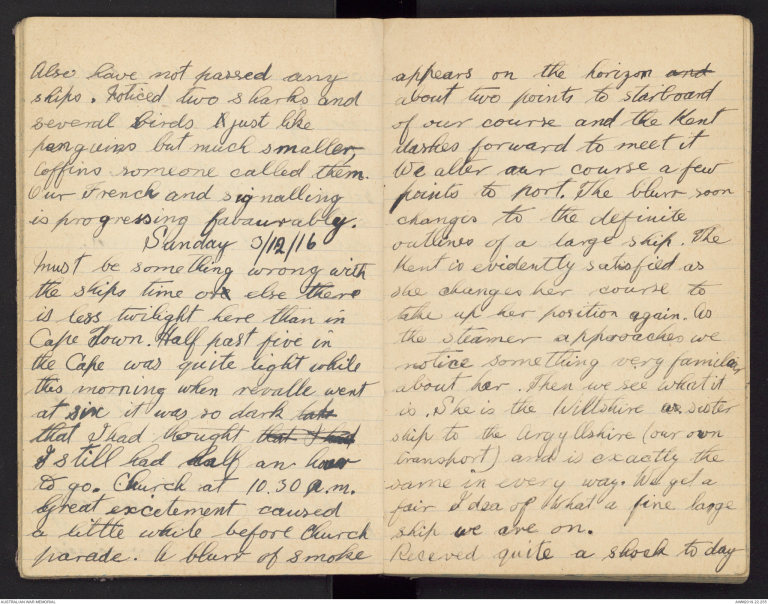 Also have not passed any
ships. Noticed two sharks and
several birds & just like
penguins but much smaller,
Coffins someone called them.
Our French and signalling
is progressing favaurably.
Sunday 3/12/16
Must be something wrong with
the ships time or else there
is less twilight here than in
Cape Town. Half past five in
the Cape was quite light while
this morning when revalle went
at six it was so dark
that I had thought that I had
I still had half an hour
to go. Church at 10.30 a.m.
Great excitement caused
a little while before Church
parade. A blurr of smoke
appears on the horizon and
about two points to starboard
of our course and the Kent
dashes forward to meet it
We alter our course a few
points to port. The blurr soon
changes to the definite
outlines of a large ship. The
Kent is evidently satisfied as
she changes her course to
take up her position again. As
the steamer approaches we
notice something very familiar
about her. Then we see what it
is. She is the Wiltshire a sister
ship to the Argyllshire (our own
transport) and is exactly the
same in every way. We get a
fair Idea of What a fine large
ship we are on.
Receved quite a shock to day
AUSTRALIAN WAR MEMORIAL